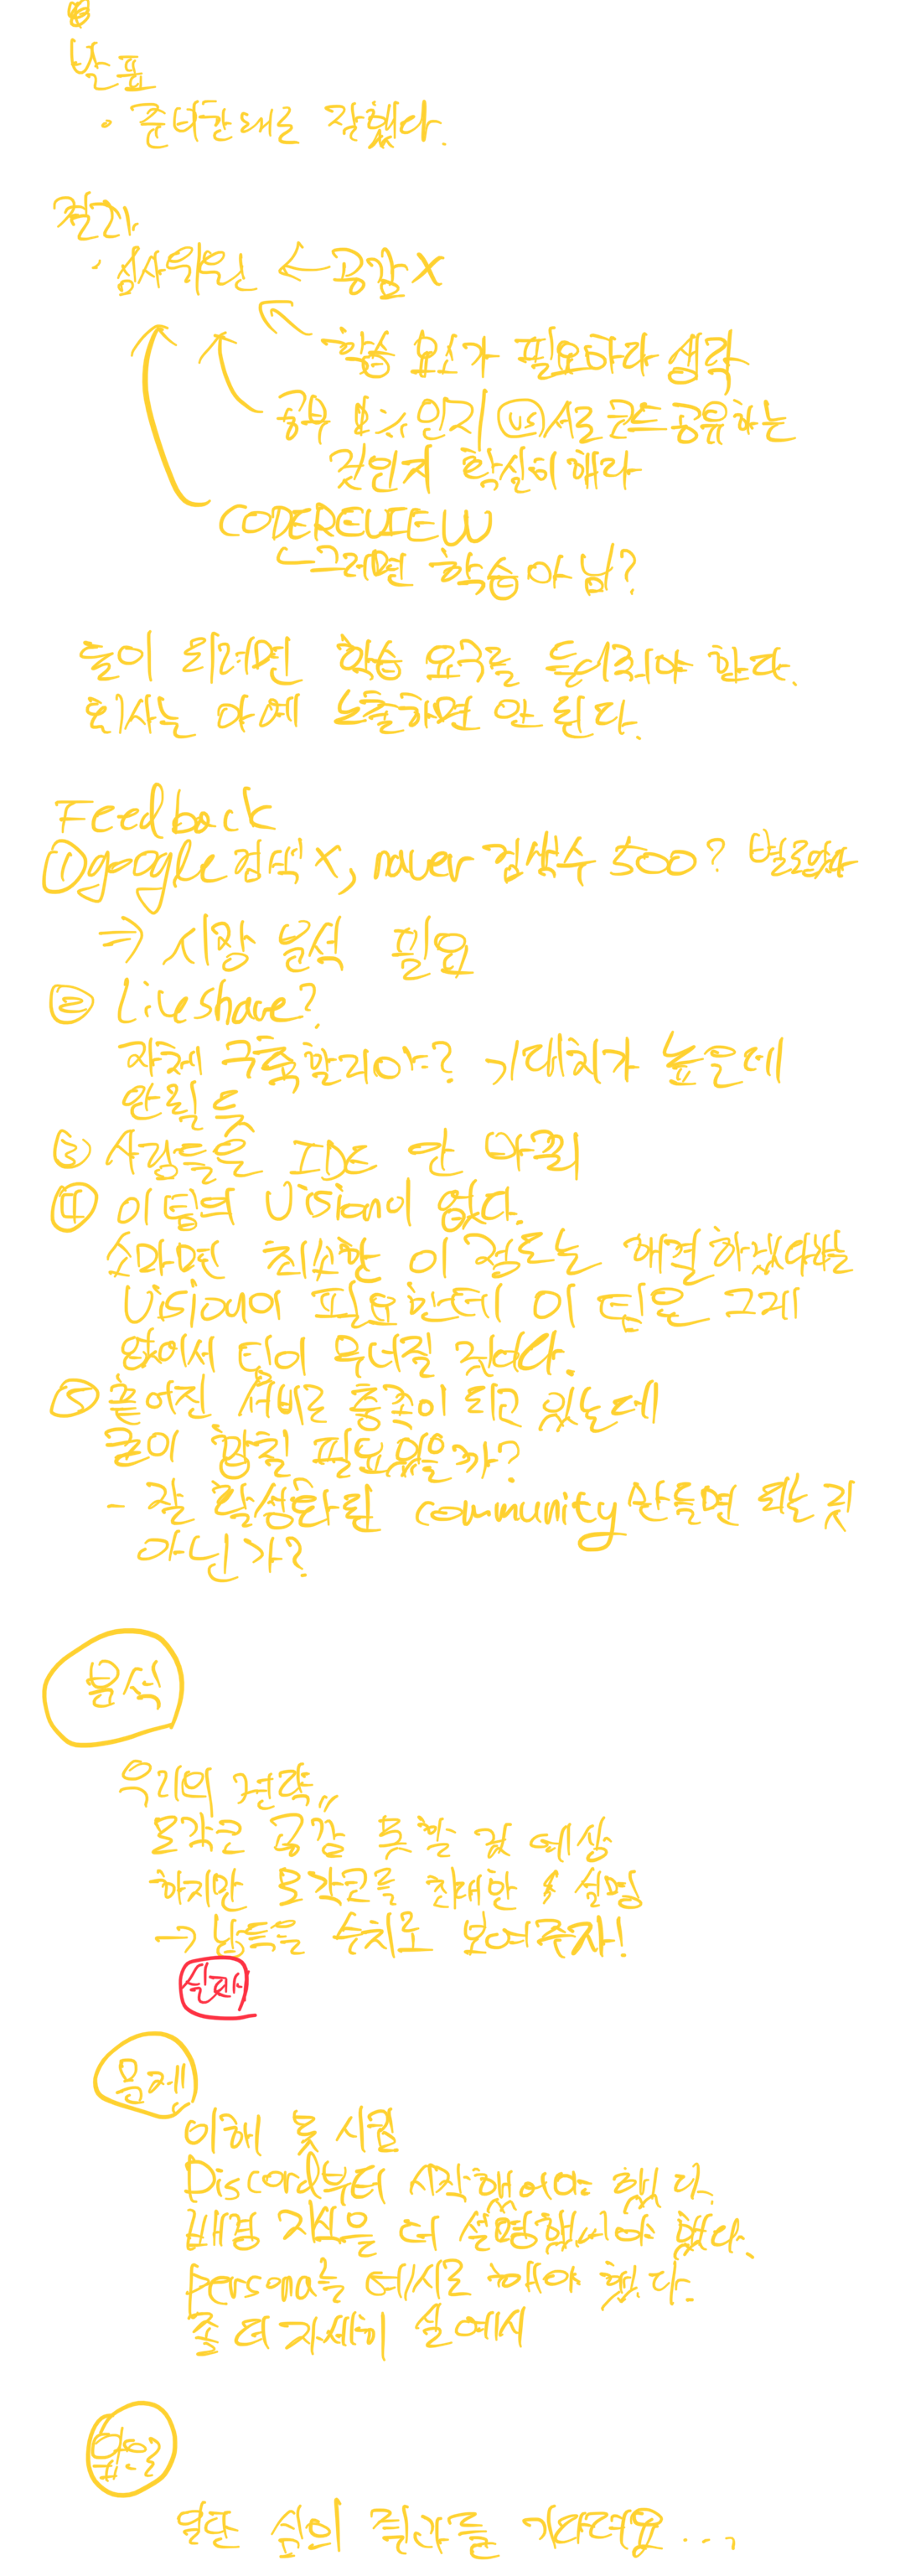 발표
· 준비한대로 잘했다.
결과
· 심사위원 ← 공감X
학습 요소가 필요하다 생각
공부 요소인지 (vs) 서로 코드공유하는
것인지 확실히해라
CODEREVIEW
그러면 학습아님?
돈이 되려면 학습 요구를 들어줘야 한다.
회사는 아예 노출하면 안 된다.
Feedback
① google 검색 X, naver 검색수 500? 별로없다
⇒ 시장 분석 필요
② Liveshare?
자체 구축할거야? 기대치가 높은데
안될 듯
③ 사람들은 IDE 안 바꿔
④ 이 팀의 Vision이 없다.
소마면 최소한 이 정도는 해결하겠다하는
Vision이 필요한데 이 팀은 그게
없어서 팀이 무너질 것이다.
⑤ 흩어진 서비로 충족이 되고 있는데
굳이 합칠 필요있을까?
- 잘 활성화된 community 만들면 되는것
아닌가?
분석
우리의 전략..
모각코 공감 못할 것 예상
하지만 모각코를 최대한 설명
→ 남들을 수치로 보여주자!
실패
문제
이해 못 시킴
Discord부터 시작했어야 했다.
배경 지식을 더 설명했어야 했다.
persona는 예시로 해야 했다.
좀 더 자세히 실예시
앞으로
일단 심의 결과를 기다려요...,